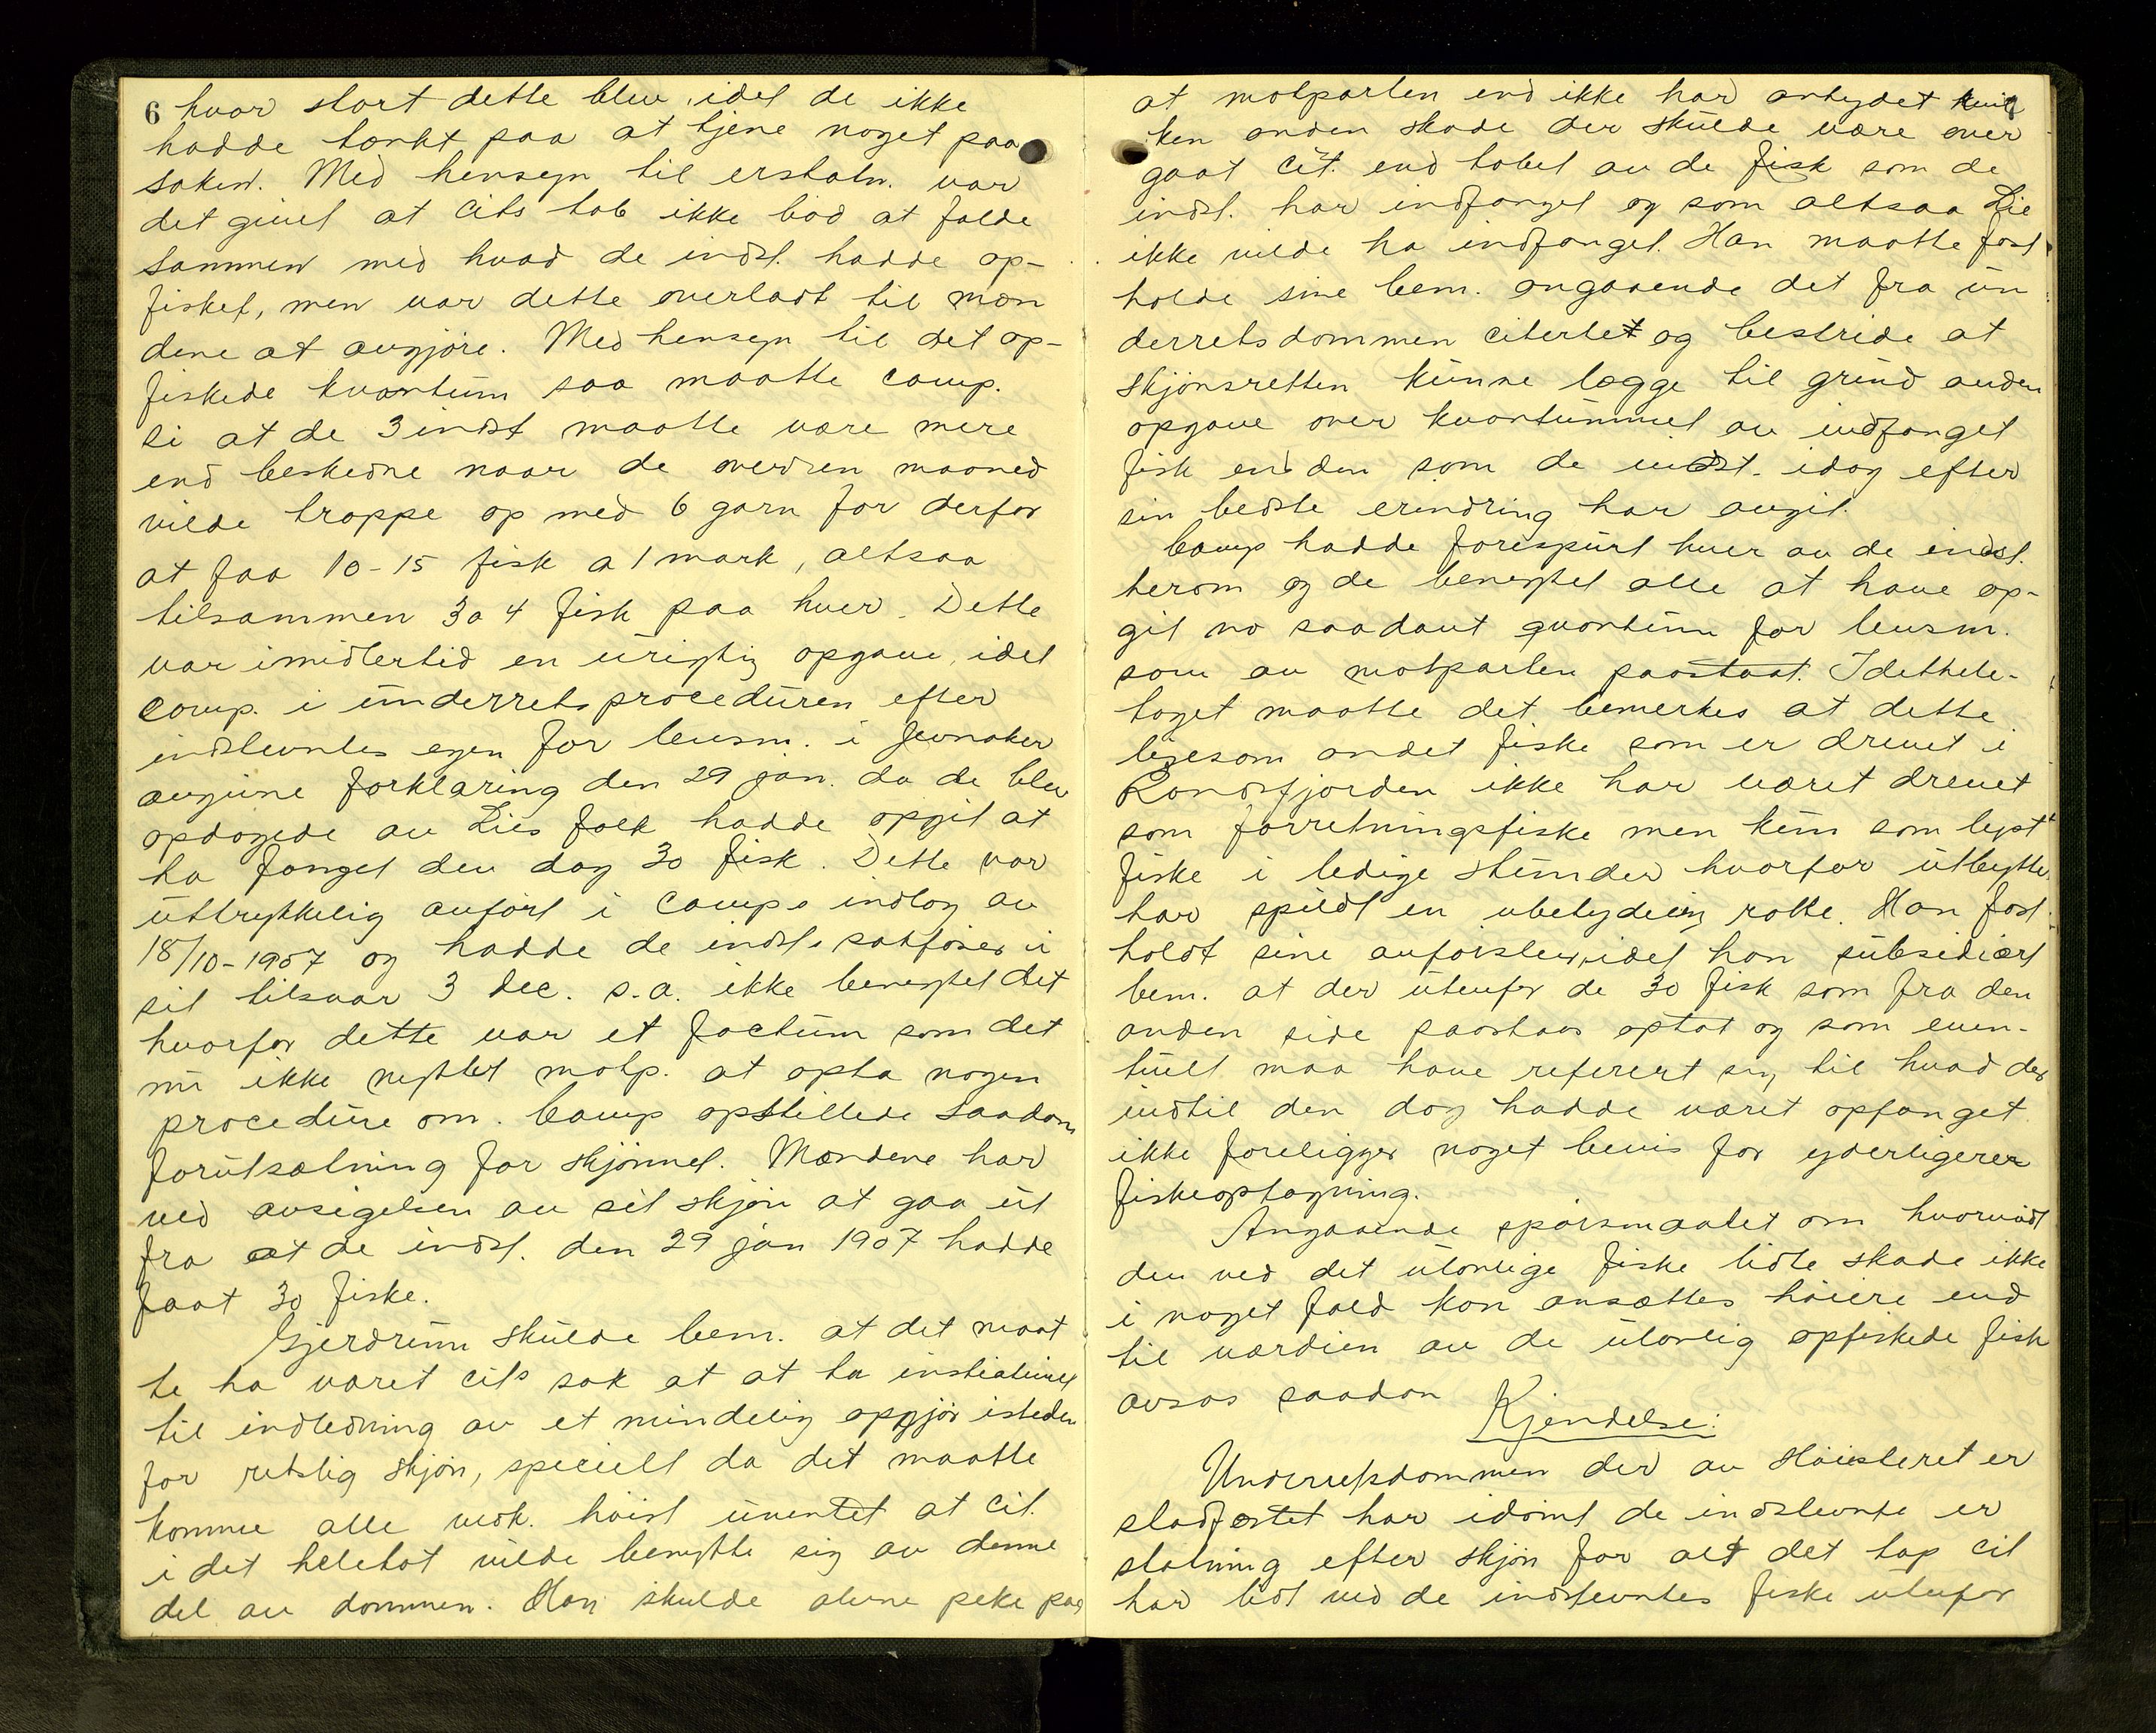 6 hvor stort dette blev, idet de ikke
hadde tænkt paa at tjene noget paa
saken. Med hensyn til erstatn. var
det givet at cits tab ikke bød at falde
sammen med hvad de indst. hadde op-
fisket, men var dette overladt til mæn
dene at avgjøre. Med hensyn til det op-
fiskede kvantum saa maatte comp.
si at de 3 indst maatte være mere
end beskedne naar de over en maaned
vilde troppe op med 6 garn for derfor
at faa 10-15 fisk a 1 mark, altsaa
tilsammen 3 a 4 fisk paa hver. Dette
var imidlertid en urigtig opgave, idet
comp. i underretsproceduren efter
indstevntes egen for lensm. i Jevnaker
avgivne forklaring den 29 jan. da de blev
opdagede av Lies folk hadde opgit at
ha fanget den dag 30 fisk. Dette var
uttrykkelig anført i comps indlæg av
18/10-1907 og hadde de indst. sakfører i
sit tilsvar 3 dec. s.a. ikke benegtet det
hvorfor dette var et factum som det
nu ikke nyttet motp. at opta nogen
procedure om. Comp opstillede saadan
forutsætning for skjønnet. Mændene har
ved avsigelsen av sit skjøn at gaa ut
fra at de indst. den 29 jan 1907 hadde
faat 30 fiske.
Gjerdrum skulde bem. at det maat
te ha været cits sak at at ta instiativet
til indledning av et mindelig opgjør isteden
for retslig skjøn, specielt da det maatte
komme alle vedk. høist uventet at cit.
i det heletat vilde benytte sig av denne
del av dommen. Han skulde alene peke paa
at motparten end ikke har antydet hvil
ken anden skade der skulde være over
gaat cit. end tabet av de fisk som de
indst. har indfanget og som altsaa Lie
ikke vilde ha indfanget. Han maatte fast
holde sine bem. angaaende det fra un
derretsdommen citertet og bestride at
skjønsretten kunne lægge til grund anden
opgave over kvantummet av indfanget
fisk end den som de indst. idag efter
sin bedste erindring har avgit.
Comp hadde forespurt hver av de indst.
herom og de benegtet alle at have op-
git no saadant qvantum for lensm.
som av motparten paastaat. Idethele-
taget maatte det bemerkes at dette
likesom andet fiske som er drevet i
Randsfjorden ikke har været drevet
som forretningsfiske men kun som lyst
fiske i ledige stunder hvorfor utbytte
har spillt en ubetydelig rolle. Han fast
holdt sine anførsler, idet han subsidiært
bem. at der utenfor de 30 fisk som fra den
anden side paastaas optat og som even-
tuelt maa have referert sig til hvad der
indtil den dag hadde været opfanget
ikke foreligger noget bevis for yderligerer
fiskeoptagning.
Angaaende spørsmaalet om hvorvidt
den ved det ulovlige fiske lidte skade ikke
i noget fald kan ansættes høiere end
til værdien av de ulovlig opfiskede fisk
avsas saadan Kjendelse:
Underretsdommen der av Høiesteret er
stadfæstet har idømt de indstevnte er
statning efter skjøn for alt det tap cit
har lidt ved de indstevntes fiske utenfor